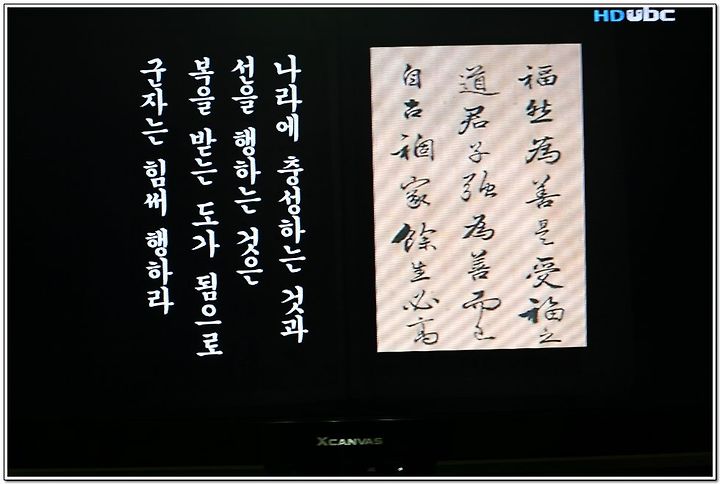 HD ubc
나라에 충성하는 것과
선을 행하는 것은
복을 받는 도가 됨으로
군자는 힘써 행하라
福 為善是受福之
道君子強為善而已
自古 家餘 必高
XCANVAS